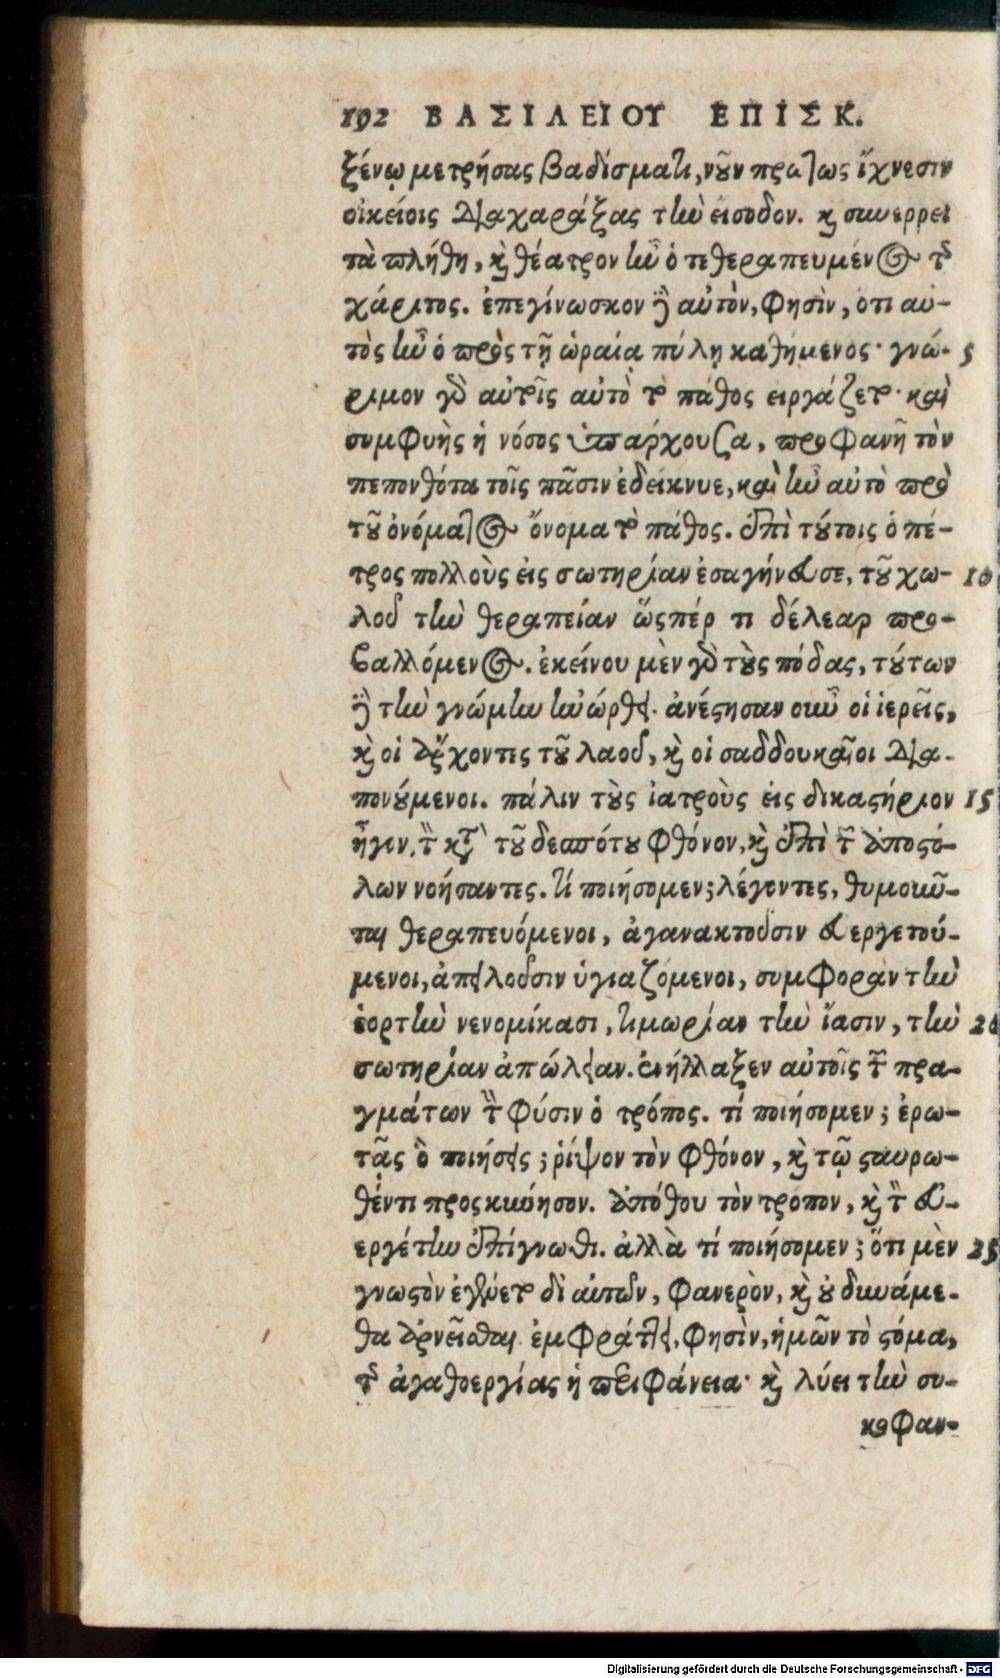 192 ΒΑΣΙΛΕΙΟΥ ΕΠΙΣΚ.
ξένῳ μετρήσας βαδίσματι, νῦν πρώτως ἴχνεσιν
οἰκείοις διαχαράξας τὴν εἴσοδον. καὶ συνερρει
τὰ πλήθη, καὶ θέατρον ἦν ὁ τεθεραπευμένος τῆς
χάριτος. ἐπεγίνωσκον δὲ αὐτὸν, φησὶν, ὅτι αὐ-
τὸς ἦν ὁ πρὸς τῇ ὡραίᾳ πύλῃ καθήμενος· γνώ- 5
ριμον γὰρ αὐτοῖς αὐτὸ τὸ πάθος ειργάζετο· καὶ
συμφυὴς ἡ νόσος ὑπάρχουσα, προφανῆ τὸν
πεπονθότα τοῖς πᾶσιν ἐδείκνυε, καὶ ἦν αὐτὸ πρὸ
τοῦ ὀνόματος ὄνομα τὸ πάθος. ἐπὶ τούτοις ὁ πέ-
τρος πολλοὺς εἰς σωτηρίαν ἐσαγήνευσε, τοῦ χω- 10
λοῦ τὴν θεραπείαν ὥσπέρ τι δέλεαρ προ-
βαλλόμενος. ἐκείνου μὲν γὰρ τοὺς πόδας, τούτων
δὲ τὴν γνώμην ηὐώρθει. ἀνέστησαν οὖν οἱ ἱερεῖς,
καὶ οἱ ἄρχοντες τοῦ λαοῦ, καὶ οἱ σαδδουκαῖοι δια-
πονούμενοι. πάλιν τοὺς ἰατροὺς εἰς δικαστήριον 15
ἦγον, τὸν κατὰ τοῦ δεσπότου φθόνον, καὶ ἐπὶ τῶν ἀποστό-
λων νοήσαντες. τί ποιήσομεν; λέγοντες, θυμοῦν-
ται θεραπευόμενοι, ἀγανακτοῦσιν εὐεργετού-
μενοι, ἀπειλοῦσιν ὑγιαζόμενοι, συμφορὰν τὴν
ἑορτὴν νενομίκασι, τιμωρίαν τὴν ἴασιν, τὴν 20
σωτηρίαν ἀπώλειαν. ἐνήλλαξεν αὐτοῖς τῶν πρα-
γμάτων τὴν φύσιν ὁ τρόπος. τί ποιήσομεν; ἐρω-
τᾷς ὃ ποιήσεις; ῥίψον τὸν φθόνον, καὶ τῷ σταυρω-
θέντι προσκύνησον. ἀπόθου τὸν τρόπον, καὶ τὸν εὐ-
εργέτην ἐπίγνωθι. ἀλλὰ τί ποιήσομεν; ὅτι μὲν 25
γνωστὸν ἐγένετο δι αὐτῶν, φανερὸν, καὶ οὐ δυνάμε-
θα ἀρνεῖσθαι. ἐμφράττει, φησὶν, ἡμῶν τὸ στόμα,
τῆς ἀγαθοεργίας ἡ περιφάνεια· καὶ λύει τὴν συ-
κοφαν-
Digitalisierung gefördert durch die Deutsche Forschungsgemeinschaft - DFG